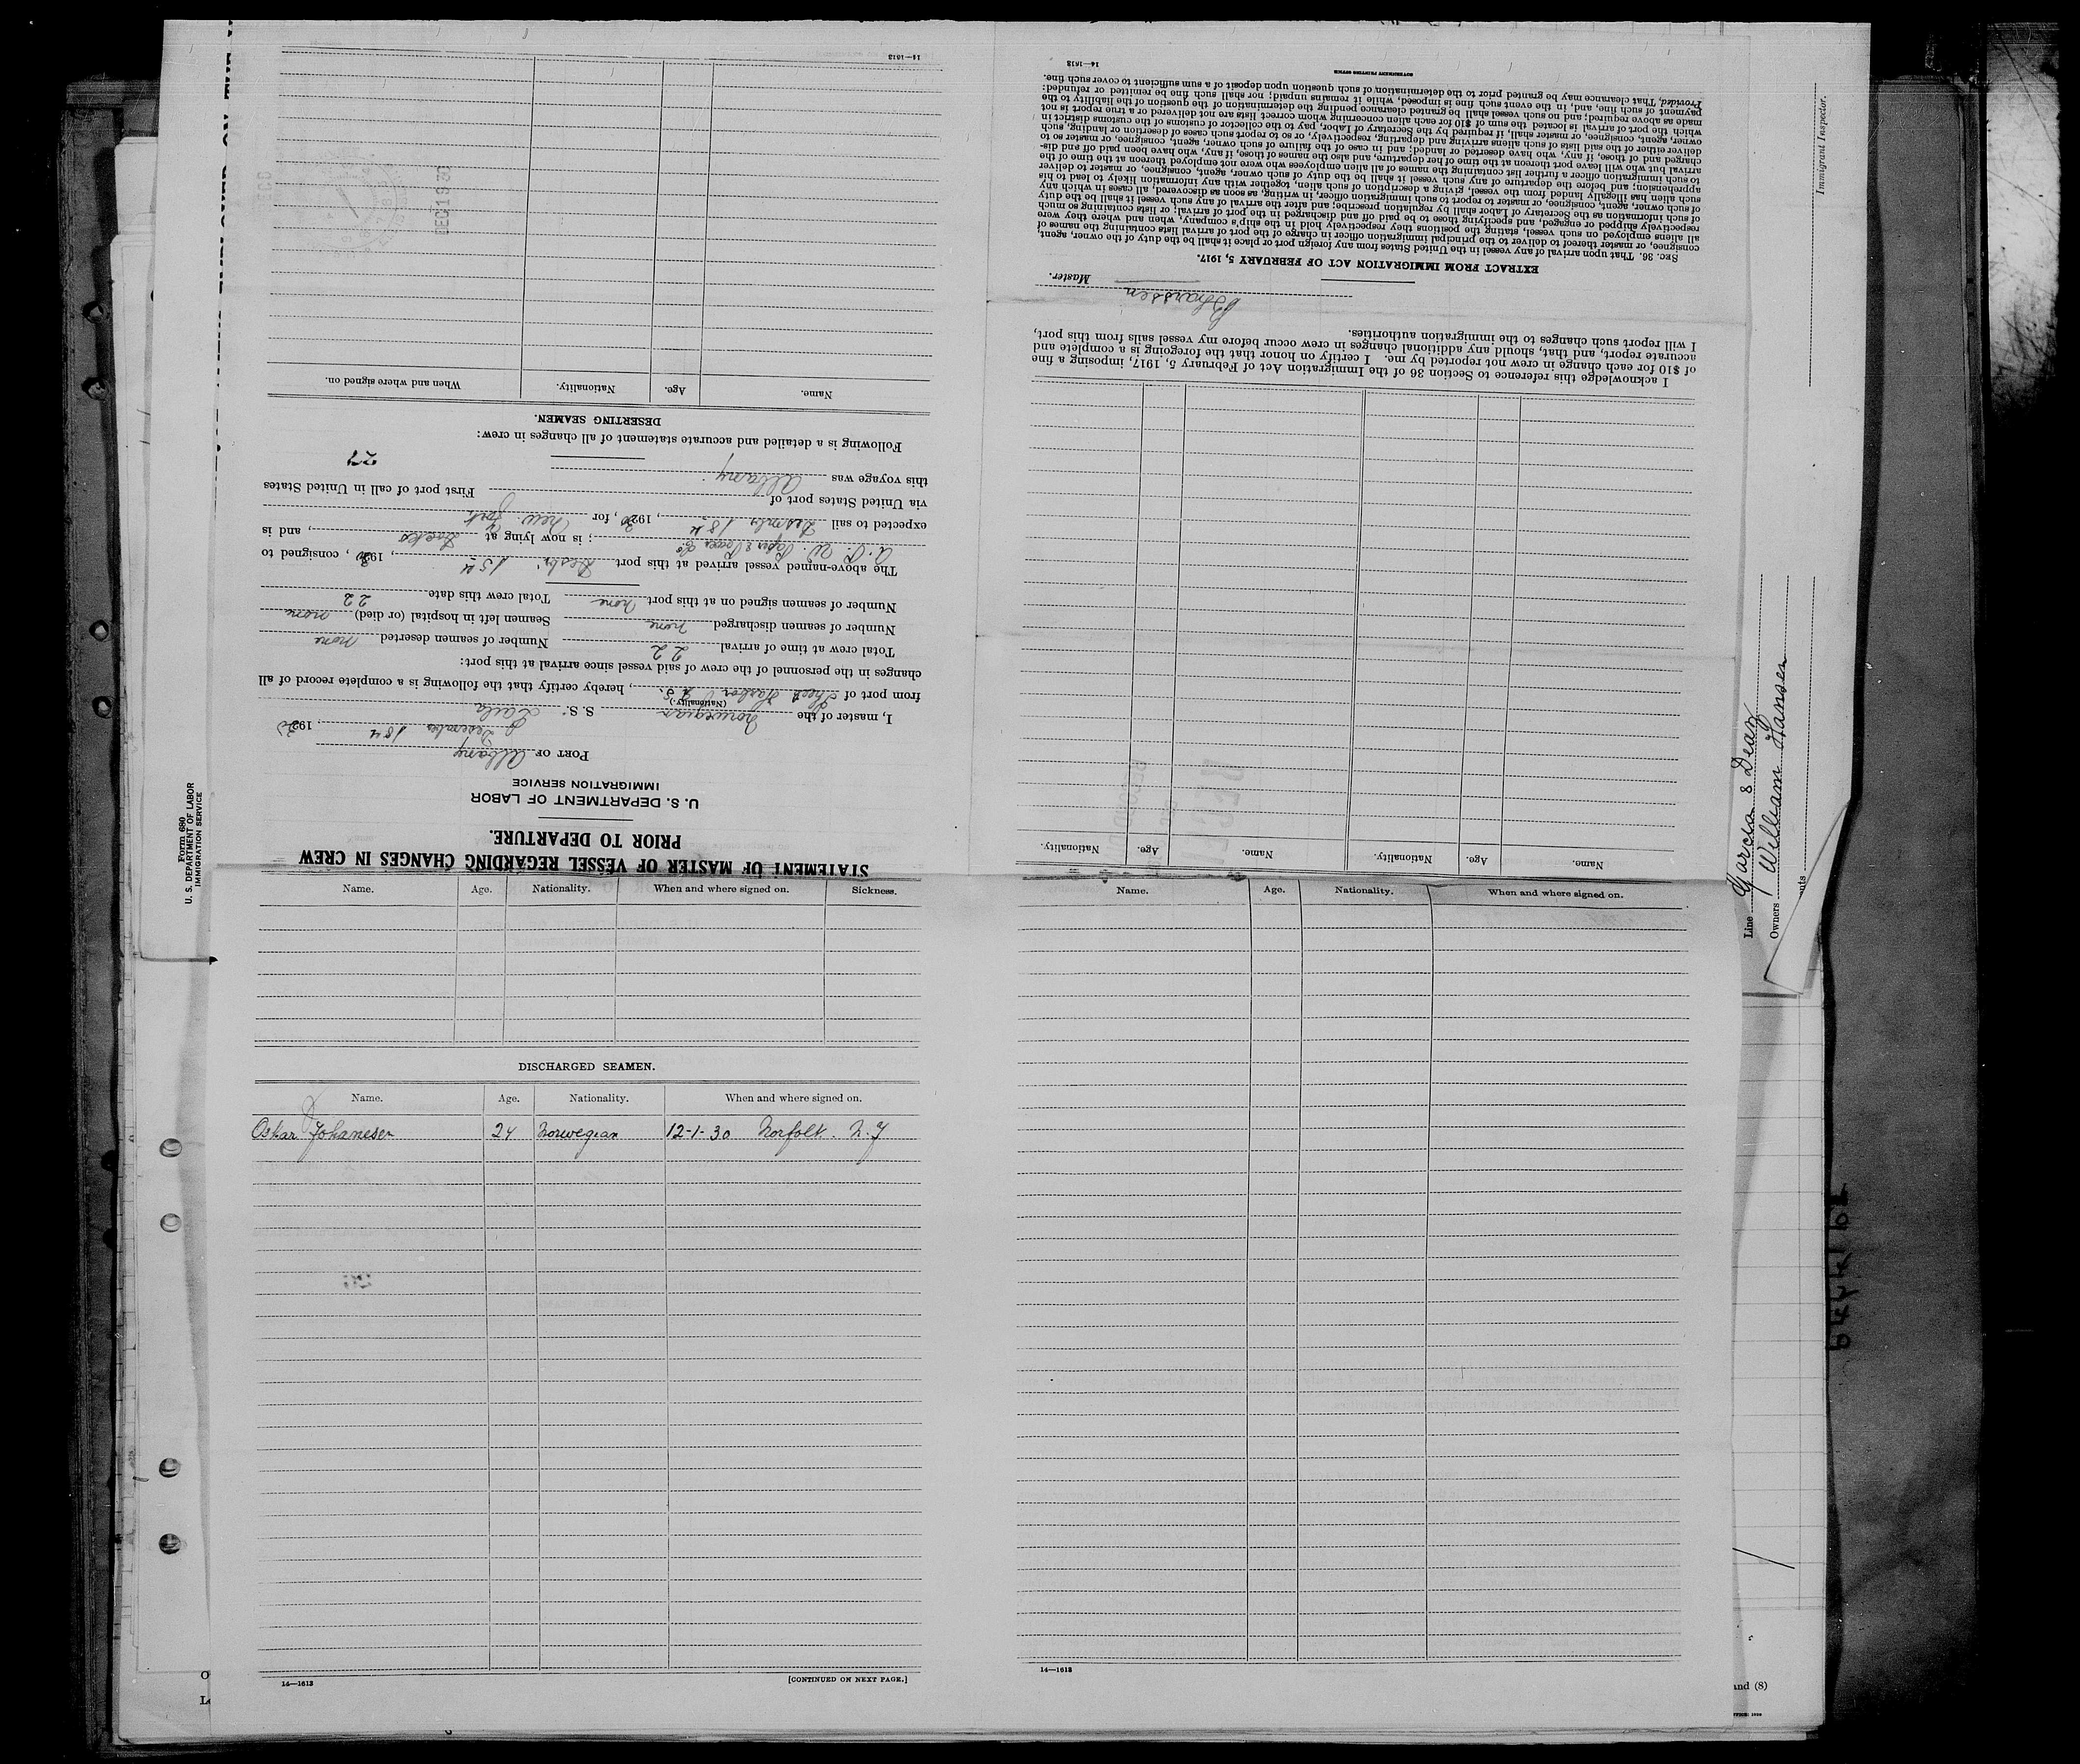 STATEMENT OF MASTER OF VESSEL REGARDING CHANGES IN CREW
PRIOR TO DEPARTURE.
U. S. DEPARTMENT OF LABOR
IMMIGRATION SERVICE
PORT OF Albany
December 18th, 1930
I, master of the Norwegian S. S.
(Nationality.)
from port of Sheet Harbor N.S., hereby certify that the following is a complete record of all
changes in the personnel of the crew of said vessel since arrival at this port:
Total crew at time of arrival 22 Number of seamen deserted none
Number of seamen discharged none Seamen left in hospital (or died) none
Number of seamen signed on at this port none Total crew this date 22
The above-named vessel arrived at this port 15th, 1930, consigned to
A. P. W. Paper ; is now lying at , and is
expected to sail 18th, 1930, for New York
via United States port of First port of call in United States
this voyage was Albany
27
Following is a detailed and accurate statement of all changes in crew:
DESERTING SEAMEN.
Name. Age. Nationality. When and where signed on.
DEC 19 30
14—1613
Name. Age. Nationality. Name. Age. Nationality.
I acknowledge this reference to Section 36 of the Immigration Act of February 5, 1917, imposing a fine
of $10 for each change in crew not reported by me. I certify on honor that the foregoing is a complete and
accurate report, and that, should any additional changes in crew occur before my vessel sails from this port,
I will report such changes to the immigration authorities.
Master.
EXTRACT FROM IMMIGRATION ACT OF FEBRUARY 5, 1917.
SEC. 36. That upon arrival of any vessel in the United States from any foreign port or place it shall be the duty of the owner, agent,
consignee, or master thereof to deliver to the principal immigration officer in charge of the port of arrival lists containing the names of
all aliens employed on such vessel, stating the positions they respectively hold in the ship's company, when and where they were
respectively shipped or engaged, and specifying those to be paid off and discharged in the port of arrival; or lists containing so much
of such information as the Secretary of Labor shall by regulation prescribe; and after the arrival of any such vessel it shall be the duty
of such owner, agent, consignee, or master to report to such immigration officer, in writing, as soon as discovered, all cases in which any
such alien has illegally landed from the vessel, giving a description of such alien, together with any information likely to lead to his
apprehension; and before the departure of any such vessel it shall be the duty of such owner, agent, consignee, or master to deliver
to such immigration officer a further list containing the names of all alien employees who were not employed thereon at the time of the
arrival but who will leave port thereon at the time of her departure, and also the names of those, if any, who have been paid off and dis-
charged and of those, if any, who have deserted or landed; and in case of the failure of such owner, agent, consignee, or master so to
deliver either of the said lists of such aliens arriving and departing, respectively, or so to report such cases of desertion or landing, such
owner, agent, consignee, or master shall, if required by the Secretary of Labor, pay to the collector of customs of the customs district in
which the port of arrival is located the sum of $10 for each alien concerning whom correct lists are not delivered or a true report is not
made as above required; and no such vessel shall be granted clearance pending the determination of the question of the liability to the
payment of such fine, and, in the event such fine is imposed, while it remains unpaid; nor shall such fine be remitted or refunded:
Provided, That clearance may be granted prior to the determination of such question upon deposit of a sum sufficient to cover such fine.
14—1613
GOVERNMENT PRINTING OFFICE
Form 680
U. S. DEPARTMENT OF LABOR
IMMIGRATION SERVICE
Immigrant Inspector.
Line Garcia & Dean
Owners William Hansen
Name. Age. Nationality. When and where signed on. Sickness.
DISCHARGED SEAMEN.
Name. Age. Nationality. When and where signed on.
Oskar Johanesen 24 Norwegian 12-1-30
14—1613
[CONTINUED ON NEXT PAGE.]
Name. Age. Nationality. When and where signed on.
14—1613
and (8)